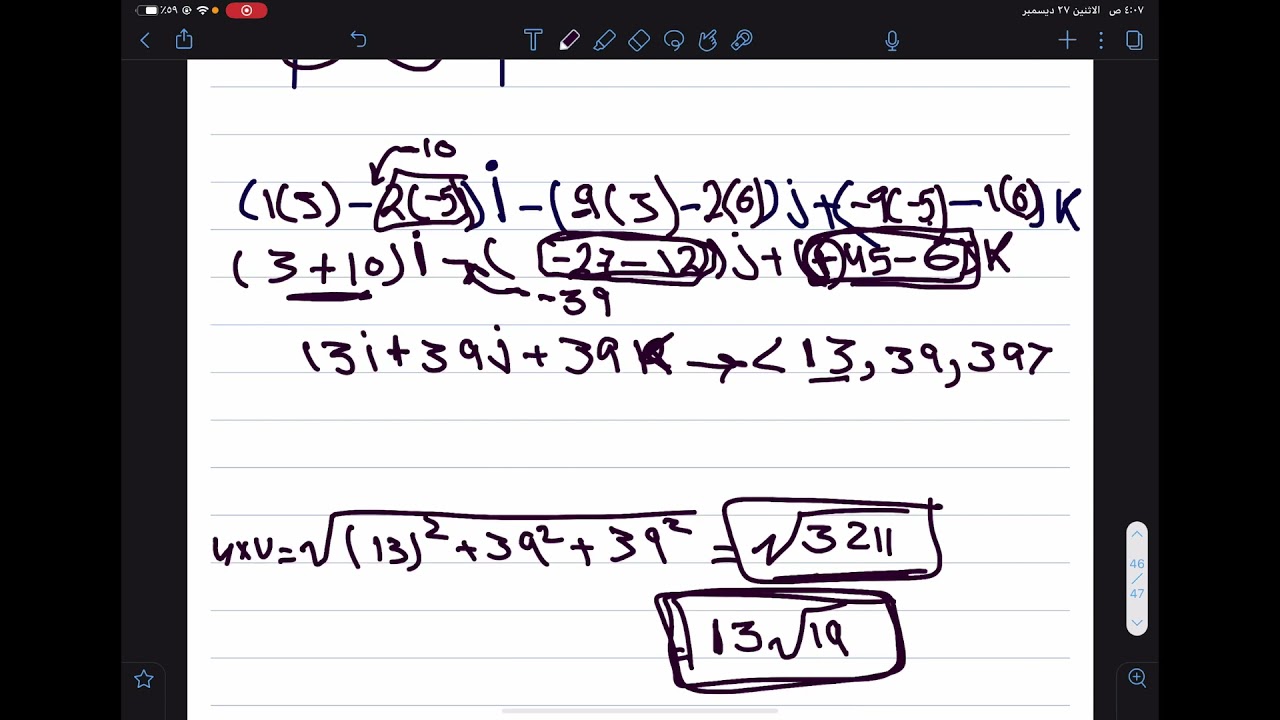 ٤:٠٧ ص الاثنين ٢٧ ديسمبر
٥٩٪
-10
(1(3) - 2(-5))i - (-9(3) - 2(6))j + (-9(-5) - 1(6))K
(3 + 10)i - (-27 - 12)j + (+45 - 6)K
-39
13i + 39j + 39K → <13, 39, 39>
u×v = √((13)² + 39² + 39²) = √3211
= 13√19
46
/
47